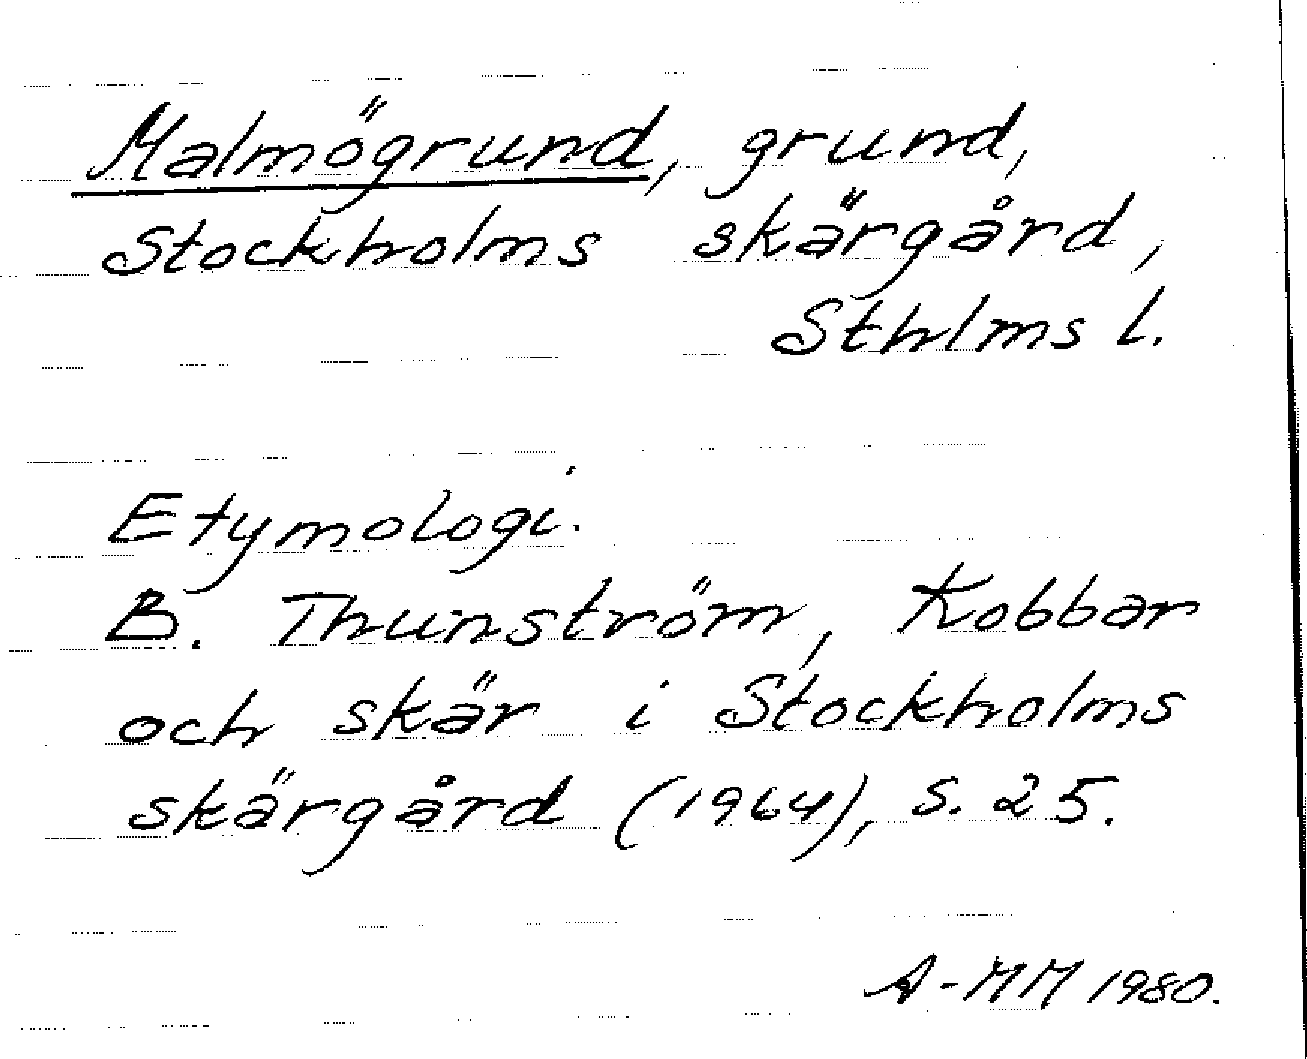 Malmögrund, grund,
Stockholms skärgård,
Sthlms l.
Etymologi.
B. Thunström, Kobbar
och skär i Stockholms
skärgård (1964), s. 25.
A-MM 1980.